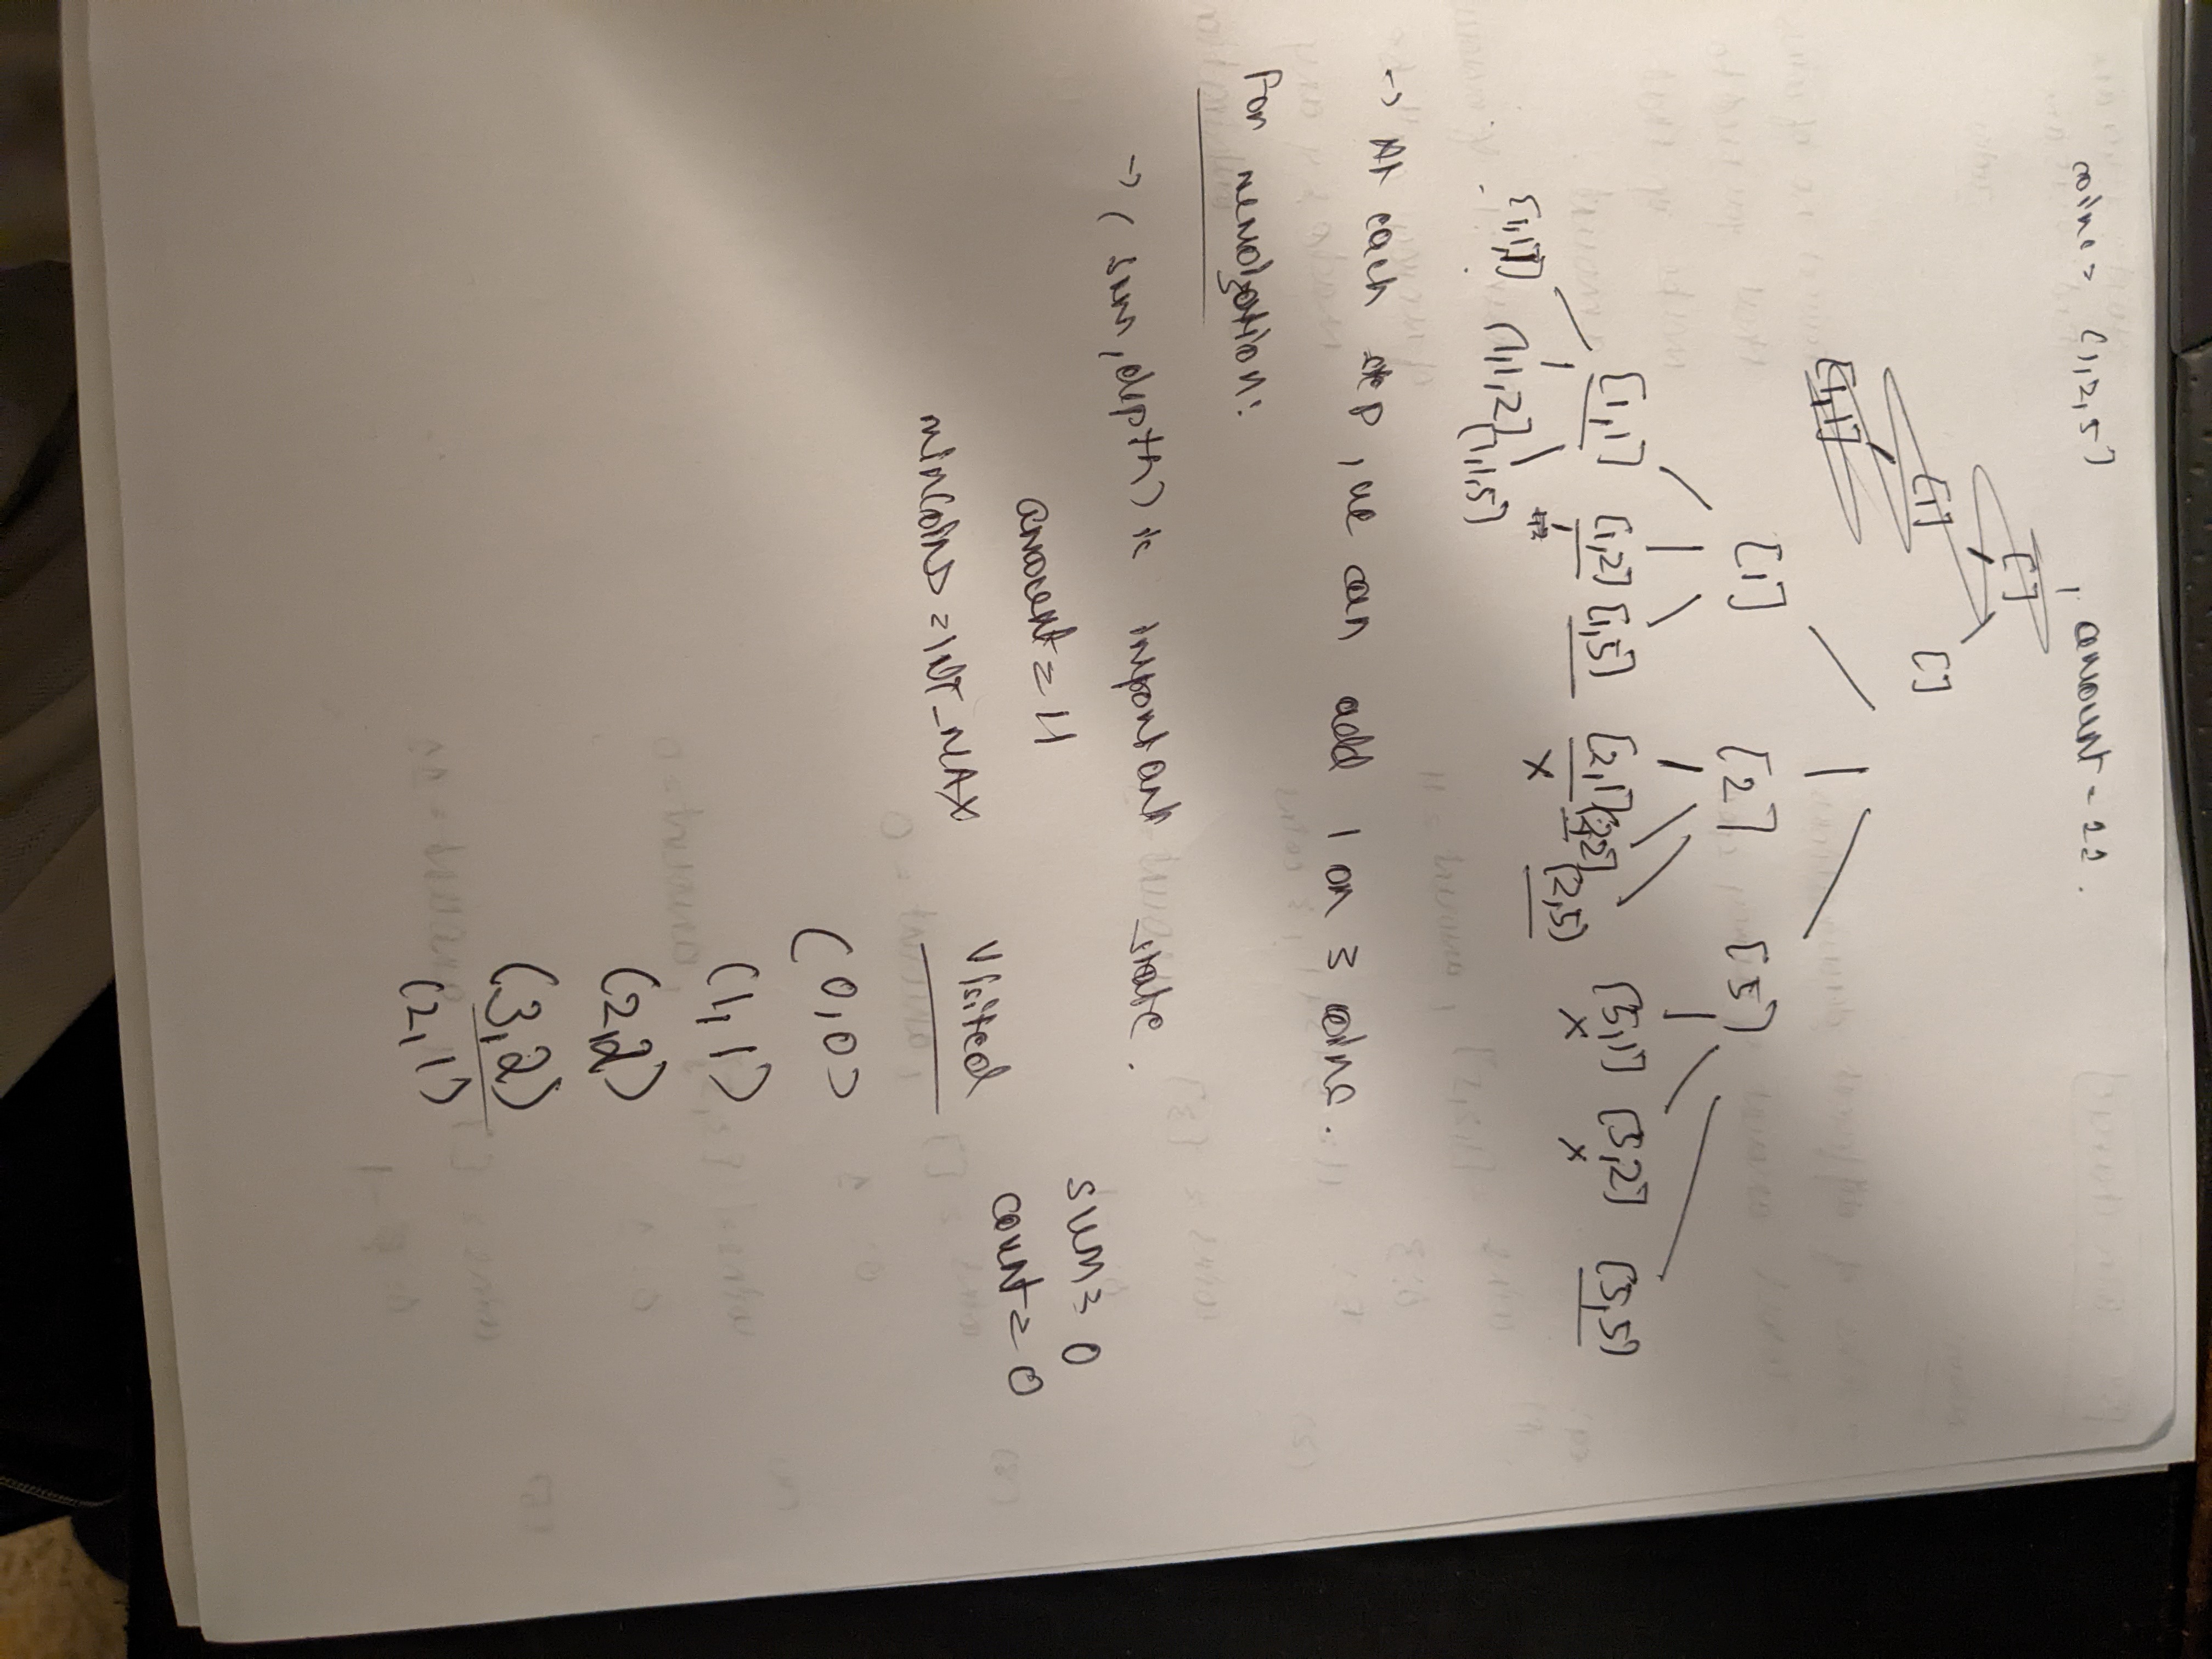 coins = [1,2,5] , amount = 11.
[]
[]
[1]
[1,1]
[1] [2] [5]
[1,1] [1,2] [1,5] [2,1] [2,2] [2,5] [5,1] [5,2] [5,5]
x x x
[1,1,1] [1,1,2] [1,1,5]
-> At each step, we can add 1 or 3 coins.
For memoization:
-> (sum, depth) is important state.
amount = 11
sum = 0
minCoins = INT_MAX
count = 0
visited
(0,0)
(1,1)
(2,2)
(3,2)
(2,1)